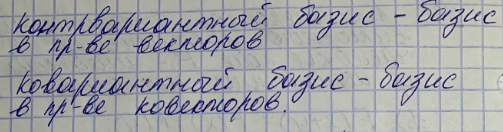 контрвариантный базис - базис
в пр-ве векторов
ковариантный базис - базис
в пр-ве ковекторов.